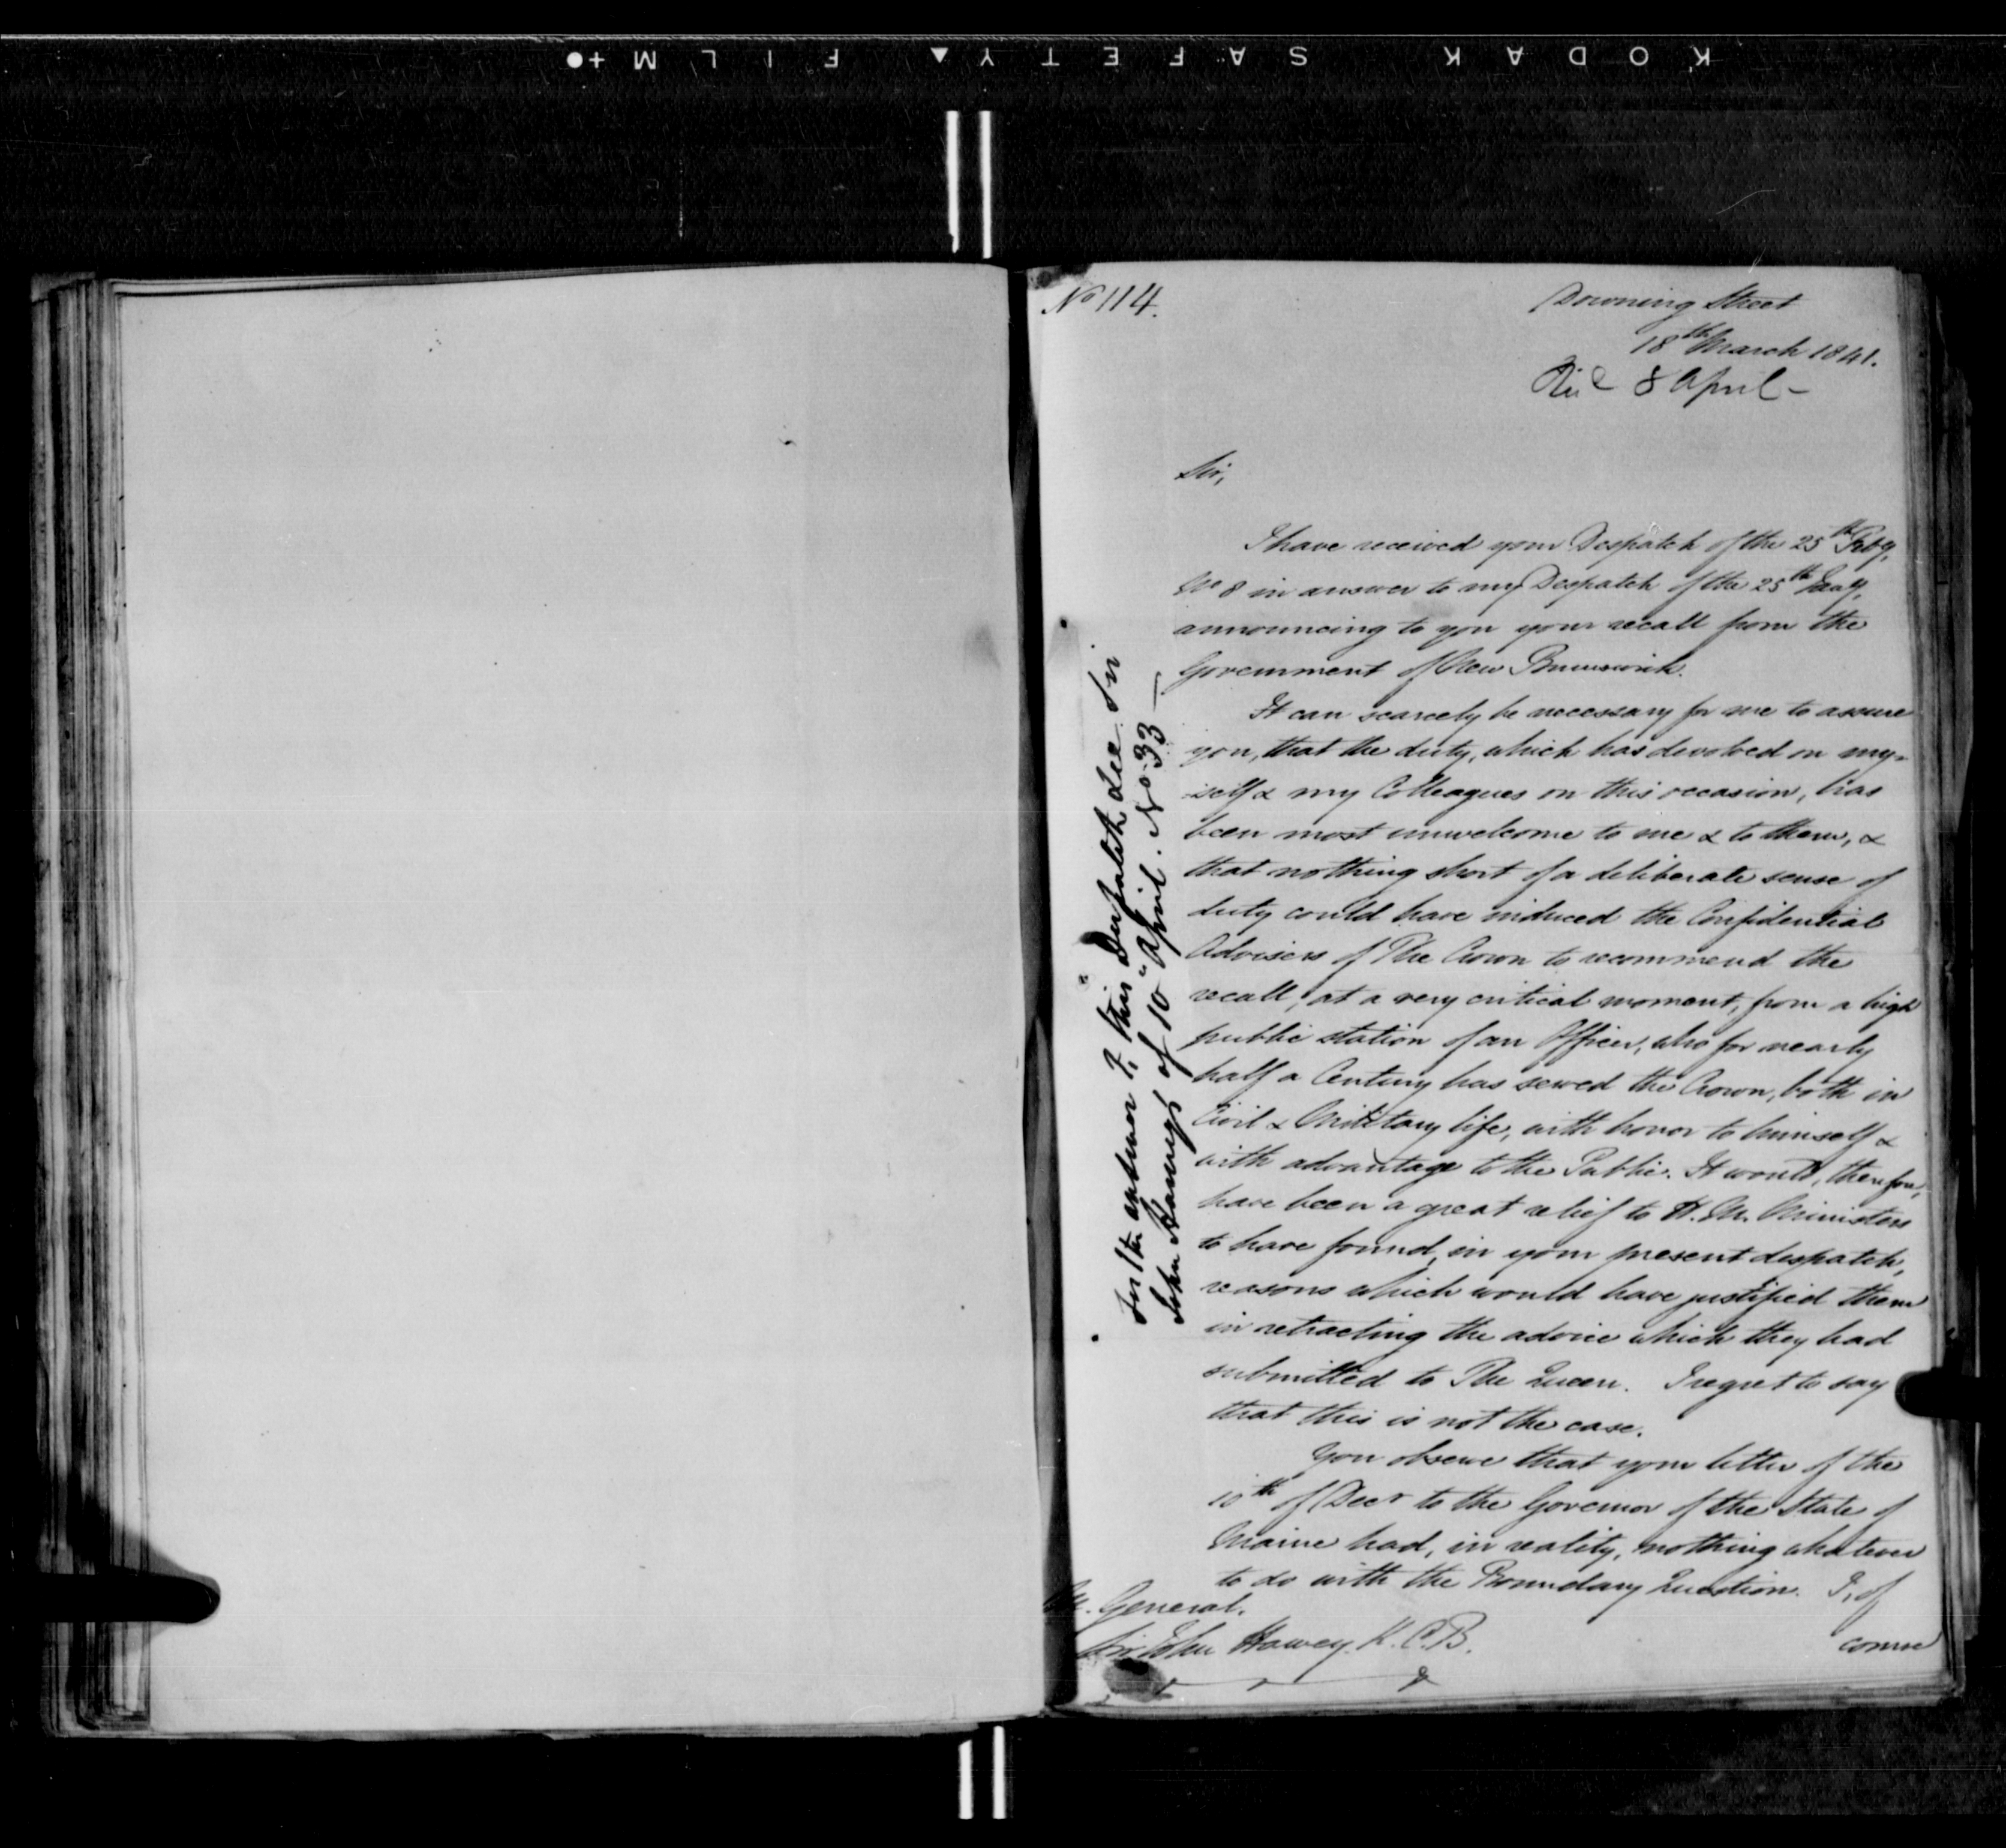 KODAK SAFETY FILM
No 114.
Downing Street
18th March 1841.
8 April -
Sir,
I have received your Despatch of the 25th Feby.
No 8 in answer to my Despatch of the 25th Jany.
announcing to you your recall from the
Government of New Brunswick.
It can scarcely be necessary for me to assure
you, that the duty, which has devolved on my-
self & my Colleagues on this occasion, has
been most unwelcome to me & to them, &
that nothing short of a deliberate sense of
duty could have induced the Confidential
Advisers of The Crown to recommend the
recall, at a very critical moment, from a high
public station of an Officer, who for nearly
half a Century has served the Crown, both in
Civil & Military life, with honor to himself &
with advantage to the Public. It would, therefore,
have been a great relief to H.M. Ministers
to have found, in your present despatch,
reasons which would have justified them
in retracting the advice which they had
submitted to The Queen. I regret to say
that this is not the case.
You observe that your letter of the
10th of Decr to the Governor of the State of
Maine had, in reality, nothing whatever
to do with the Boundary Question. I, of
course
M. General.
Sir John Harvey. K.C.B.
For the answer to this Despatch see Sir
John Harvey's of 10" April. No 33 —